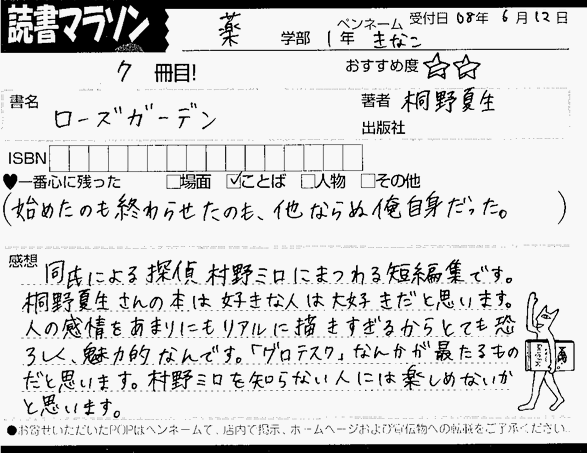 読書マラソン
薬 学部 1年 ペンネーム きなこ 受付日 08年 6月 12日
7 冊目! おすすめ度 ☆☆
書名 ローズガーデン 著者 桐野夏生
出版社
ISBN
♥一番心に残った □場面 ☑ことば □人物 □その他
(始めたのも終わらせたのも、他ならぬ俺自身だった。)
感想 同氏による探偵村野ミロにまつわる短編集です。
桐野夏生さんの本は好きな人は大好きだと思います。
人の感情をあまりにもリアルに描きすぎるからとても恐
ろしく、魅力的なんです。「グロテスク」なんかが最たるもの
だと思います。村野ミロを知らない人には楽しめないか
と思います。
●お寄せいただいたPOPはペンネームで、店内で掲示、ホームページおよび宣伝物への転載をご了承ください。